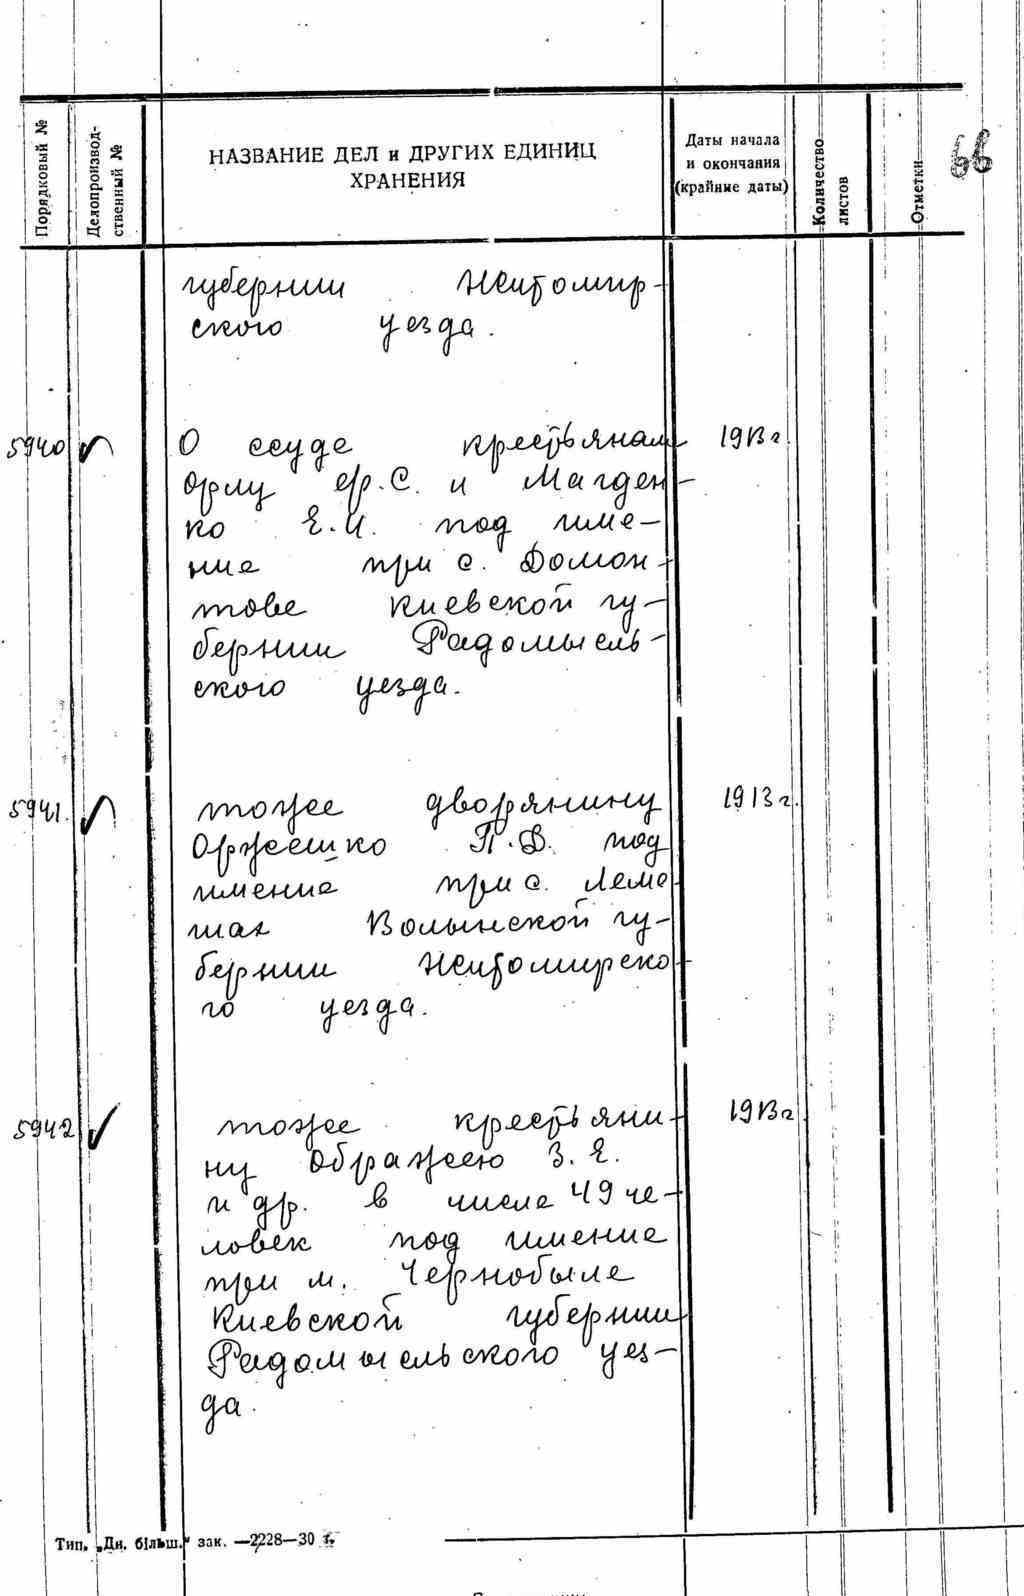 66
Порядковый №
Делопроизвод-
ственный №
НАЗВАНИЕ ДЕЛ и ДРУГИХ ЕДИНИЦ
ХРАНЕНИЯ
Даты начала
и окончания
(крайние даты)
Количество
листов
Отметки
губернии Житомир-
ского уезда.
5940 О ссуде крестьянам 1913 г.
Орлу Ф.С. и Магден-
ко Е.И. под име-
ние при с. Домон-
тове Киевской гу-
бернии Радомысль-
ского уезда.
5941. тоже дворянину 1913 г.
Оржешко П.Д. под
имение при с. Леме
шах Волынской гу-
бернии Житомирско-
го уезда.
5942 тоже крестьяни- 1913 г
ну Ображею З.Е.
и др. в числе 49 че-
ловек под имение
при м. Чернобыле
Киевской губернии
Радомысельского уез-
да.
Тип. „Дн. більш." зак. —2228—30 г.